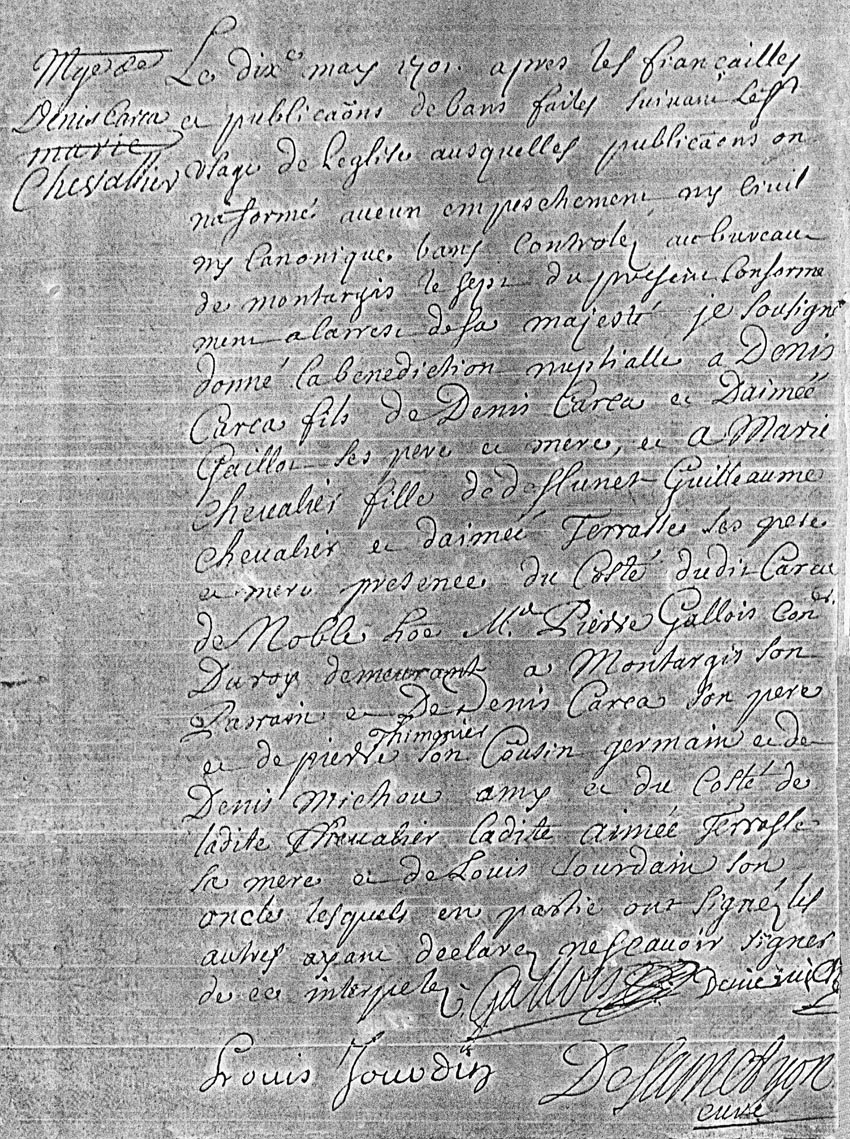 Mge de
Denis Carca
marie
Chevallier
Le dixe may 1701. apres les fiancailles
et publicaõns de bans faites suivant Les
Usage de Leglise ausquelles publicaõns on
na formé aucun empeschement ny Civil
ny Canonique. bans Controlez au bureau
de montargis le sept du present Conforme
ment a larrest de sa majesté je sousigné
donné la benediction nuptialle a Denis
Carca fils de Denis Carca et Daimée
Gaillot ses pere et mere, et a Marie
Chevalier fille de deffunct Guilleaume
Chevalier et daimée Terrasse ses pere
et mere presence du Costé dudit Carca
de Noble hõe Me Pierre Gallois Coner
Du roy demeurant a Montargis son
Parrain et De Denis Carca son pere
et de pierre Thimonier son Cousin germain et de
Denis Michou amy et du Costé de
ladite Chevalier ladite aimée Terrasse
sa mere et de Louis Jourdain son
oncle lesquels en partie ont signéz les
autres ayant declarez ne scavoir signer
de ce interpelez. Gallois Denis
Louis Jourdin
curé